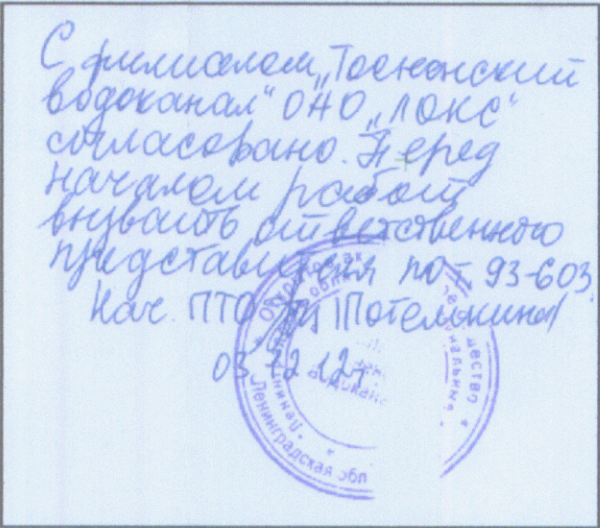 С филиалом „Тосненский
водоканал" ОАО „ЛОКС"
согласовано. Перед
началом работ
вызвать ответственного
представителя по т 93-603.
Нач. ПТО /Потемкина/
03.12.12г
Ленинградская обл